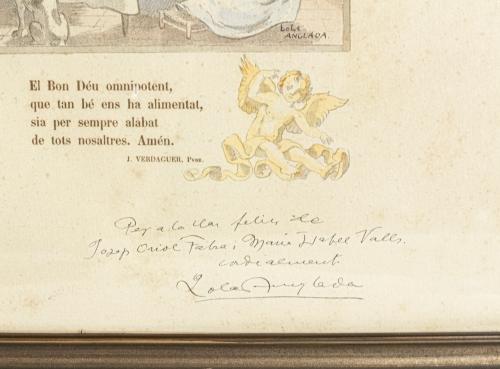 LOLA
ANGLADA.
El Bon Déu omnipotent,
que tan bé ens ha alimentat,
sia per sempre alabat
de tots nosaltres. Amén.
J. VERDAGUER, Pvre.
Per a la llar feliç de
Josep Oriol Fabra i Maria Isabel Valls.
cordialment
Lola Anglada